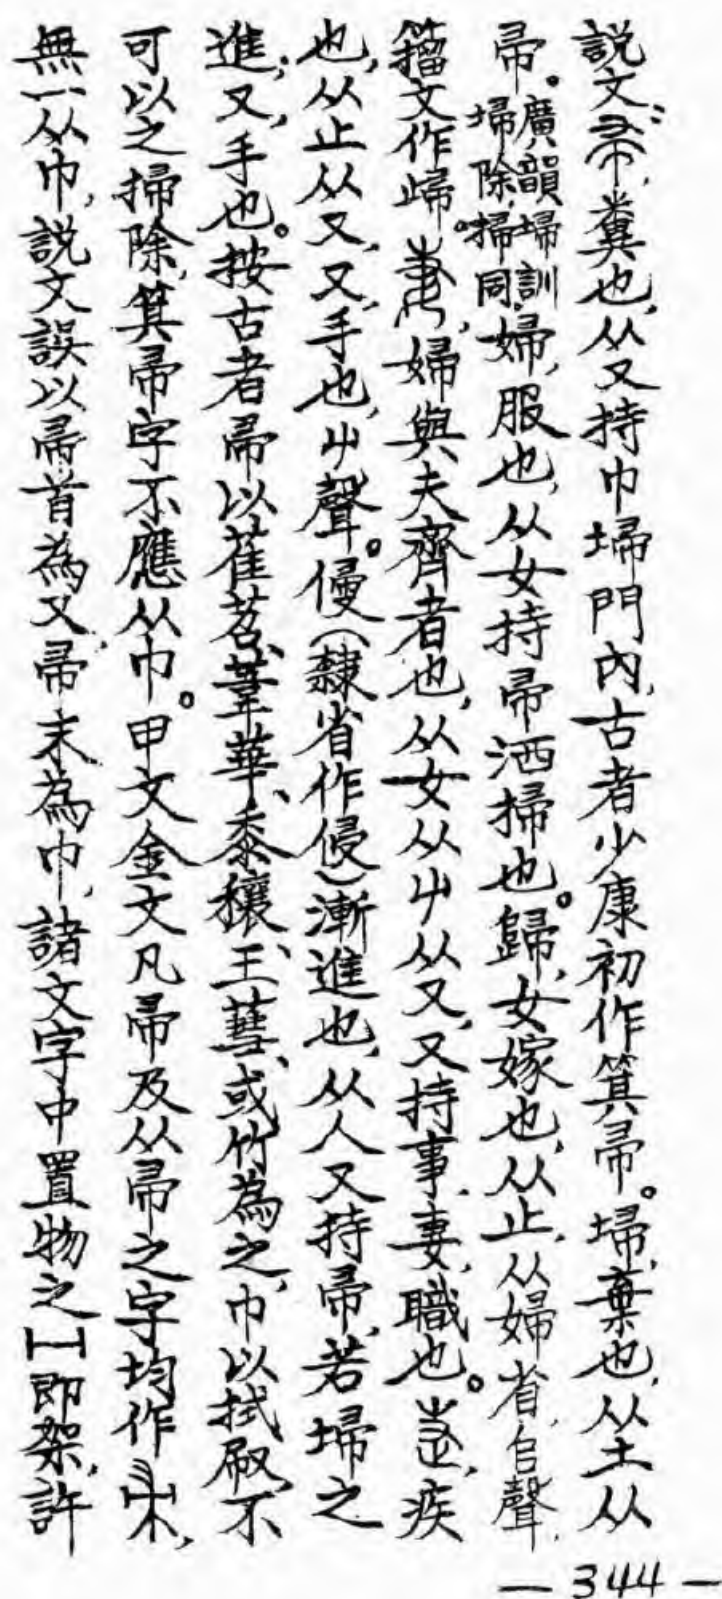 説文：帚，糞也，从又持巾埽門內，古者少康初作箕帚。埽，棄也，从土从
帚。廣韻埽訓埽除，掃同。婦，服也，从女持帚洒掃也。歸，女嫁也，从止，从婦省，𠂤聲，
籀文作㱕。婦與夫齊者也，从女从屮从又，又持事，妻，職也。疌，疾
也，从止从又，又，手也，屮聲。㑴（隸省作侵）漸進也，从人又持帚，若埽之
進，又，手也。按古者帚以萑苕、葦華、黍穰、王蔧、或竹為之，巾以拭㕞，不
可以之掃除，箕帚字不應从巾。甲文金文凡帚及从帚之字均作，
無一从巾，説文誤以帚首為又，帚末為巾，諸文字中置物之即架，許
— 344 —